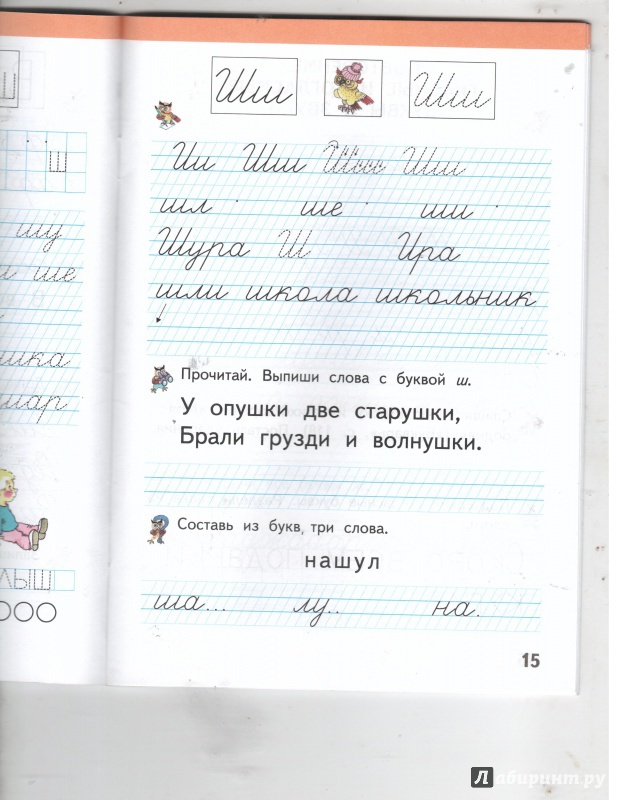 Шш Шш
Ии Шш Шссс Шш
шл ше ши
Шура Ш Ира
шли школа школьник
Прочитай. Выпиши слова с буквой ш.
У опушки две старушки,
Брали грузди и волнушки.
Составь из букв, три слова.
нашул
ша... лу.. на.
15
ш
шу
ше
шка
шар
ЛЫШ
Лабиринт.ру